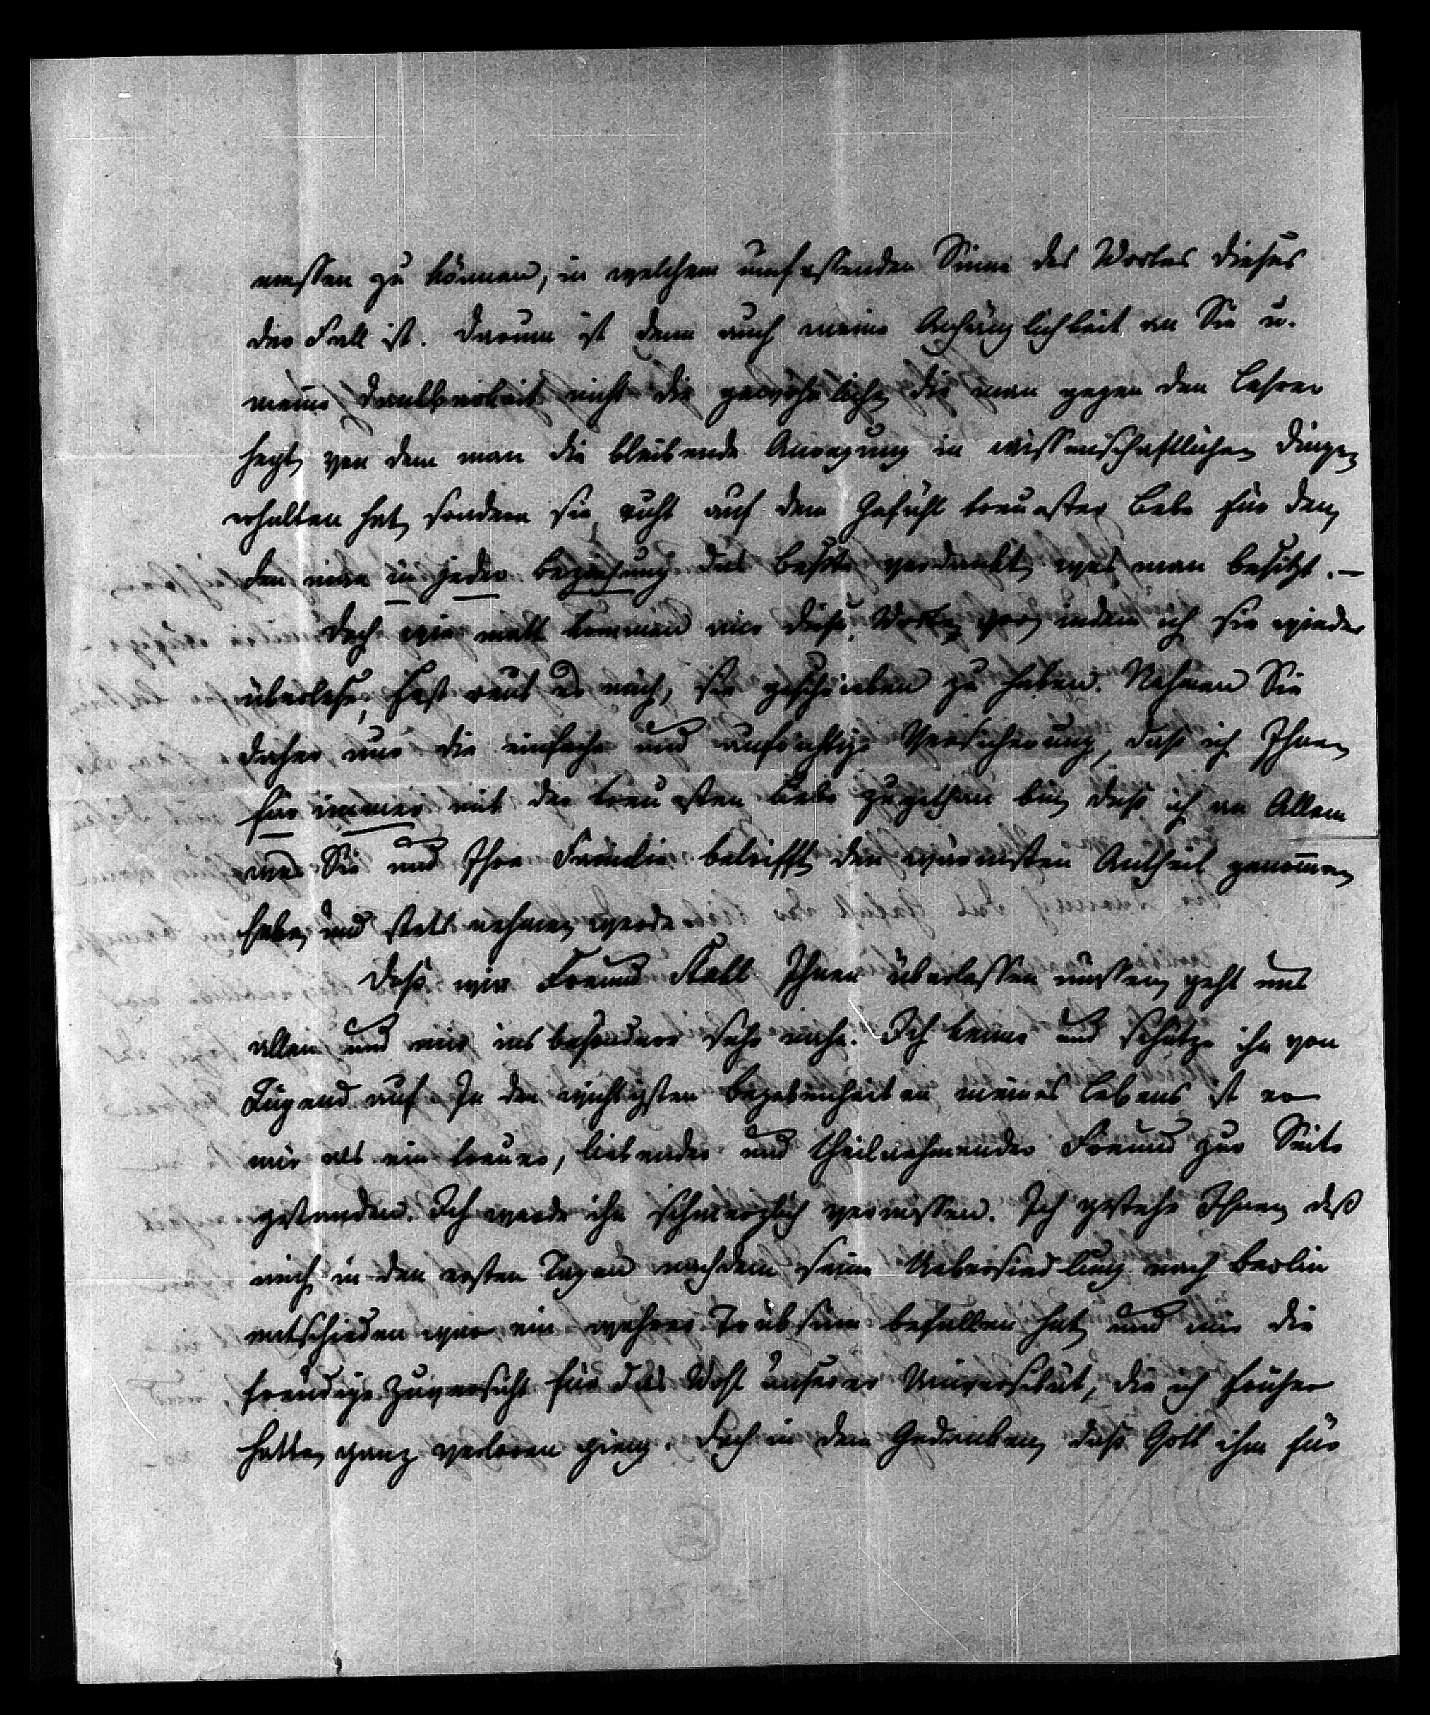 messen zu können, in welchem umfassenden Sinne des Wortes dieses
der Fall ist. Darum ist denn auch meine Anhänglichkeit an Sie u.
meine Dankbarkeit nicht die gewöhnliche, die man gegen den Lehrer
hegt, von dem man die bleibende Anregung in wissenschaftlichen Dingen
erhalten hat, sondern sie ruht auf dem Gefühl treuester Liebe für den,
dem man in jeder Beziehung das Beste verdankt, was man besitzt. –
Doch wie matt kommen mir diese Worte vor, indem ich sie wieder
überlese; fast reut es mich, sie geschrieben zu haben. Nehmen Sie
daher nur die einfache und aufrichtige Versicherung, daß ich Ihnen
für immer mit der treuesten Liebe zugethan bin, daß ich an Allem
was Sie und Ihre Familie betrifft, den wärmsten Antheil genommen
habe, und stets nehmen werde.
Daß wir Freund Stahl Ihnen überlassen müssen, geht uns
allen und mir ins besondere sehr nahe. Ich kenne und schätze ihn von
Jugend auf. In den wichtigsten Begebenheiten meines Lebens ist er
mir als ein treuer, liebender und theilnehmender Freund zur Seite
gestanden. Ich werde ihn schmerzlich vermissen. Ich gestehe Ihnen, daß
mich in den ersten Tagen nachdem seine Uebersiedlung nach Berlin
entschieden war ein wahrer Trübsinn befallen hat, und mir die
freudige Zuversicht für das Wohl unserer Universität, die ich früher
hatte, ganz verloren ging. Doch in dem Gedanken, daß Gott ihn für